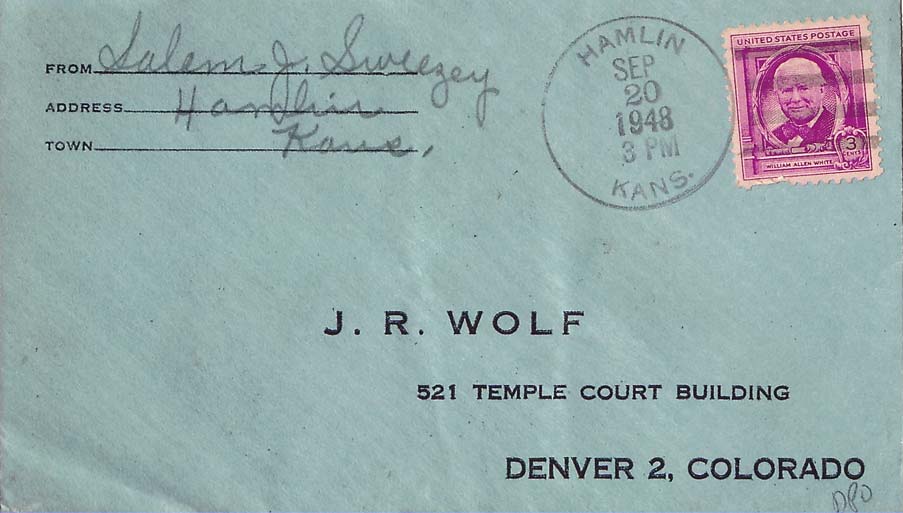 FROM Salem J. Sweezey
ADDRESS Hamlin
TOWN Kans.
HAMLIN
SEP
20
1948
3 PM
KANS.
UNITED STATES POSTAGE
3
CENTS
WILLIAM ALLEN WHITE
J. R. WOLF
521 TEMPLE COURT BUILDING
DENVER 2, COLORADO
DPO